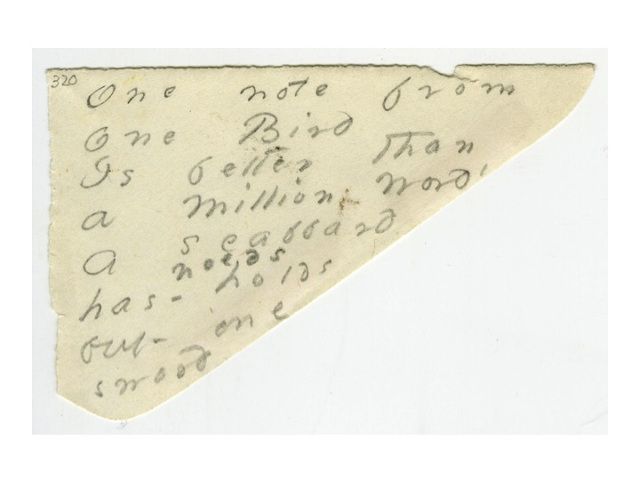 320
One note from
One Bird
Is better than
a million words
A scabbard
needs
has - holds
but one
sword